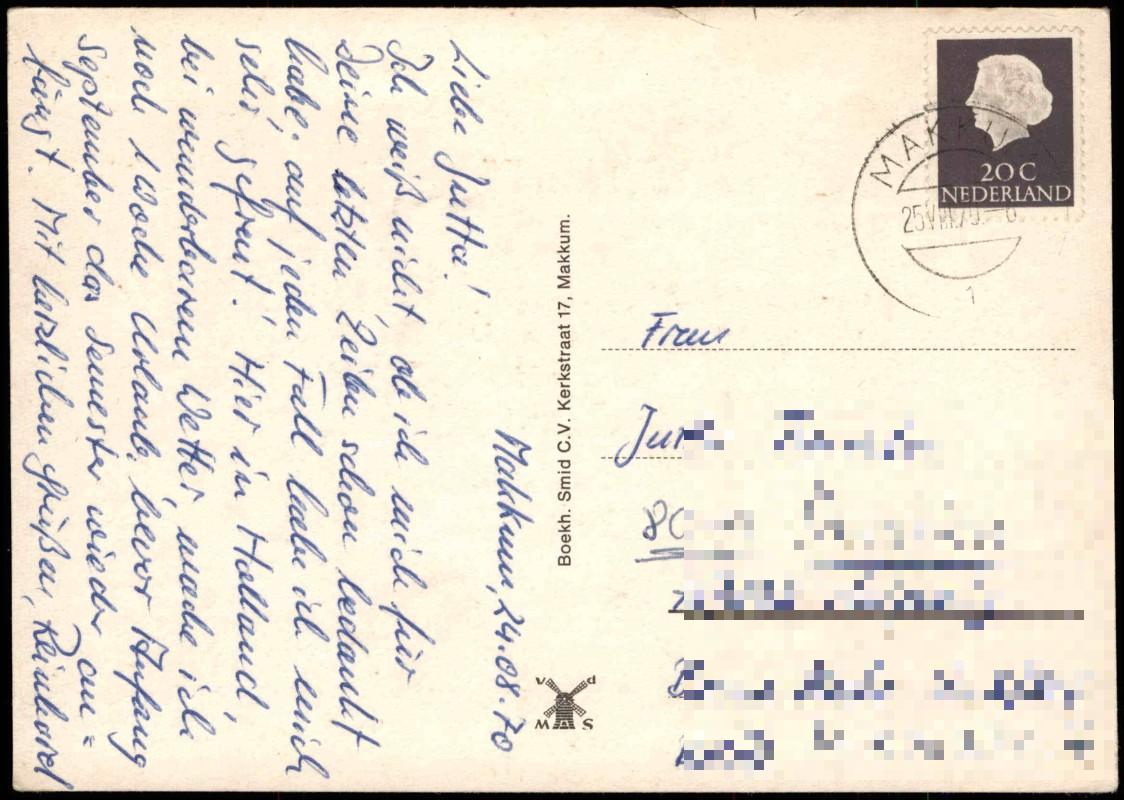 Makkum, 24.08.70
Liebe Jutta!
Ich weiß nicht, ob ich mich für
Deine letzten Zeilen schon bedankt
habe; auf jeden Fall habe ich mich
sehr gefreut! Hier in Holland,
bei wunderbarem Wetter, mache ich
noch 1 Woche Urlaub, bevor Anfang
September das Semester wieder an=
fängt. Mit herzlichen Grüßen, Reinhard
Boekh. Smid C.V. Kerkstraat 17, Makkum.
v d
W M S
20 C
NEDERLAND
MAKKUM
25 VIII.70
1
Frau
80